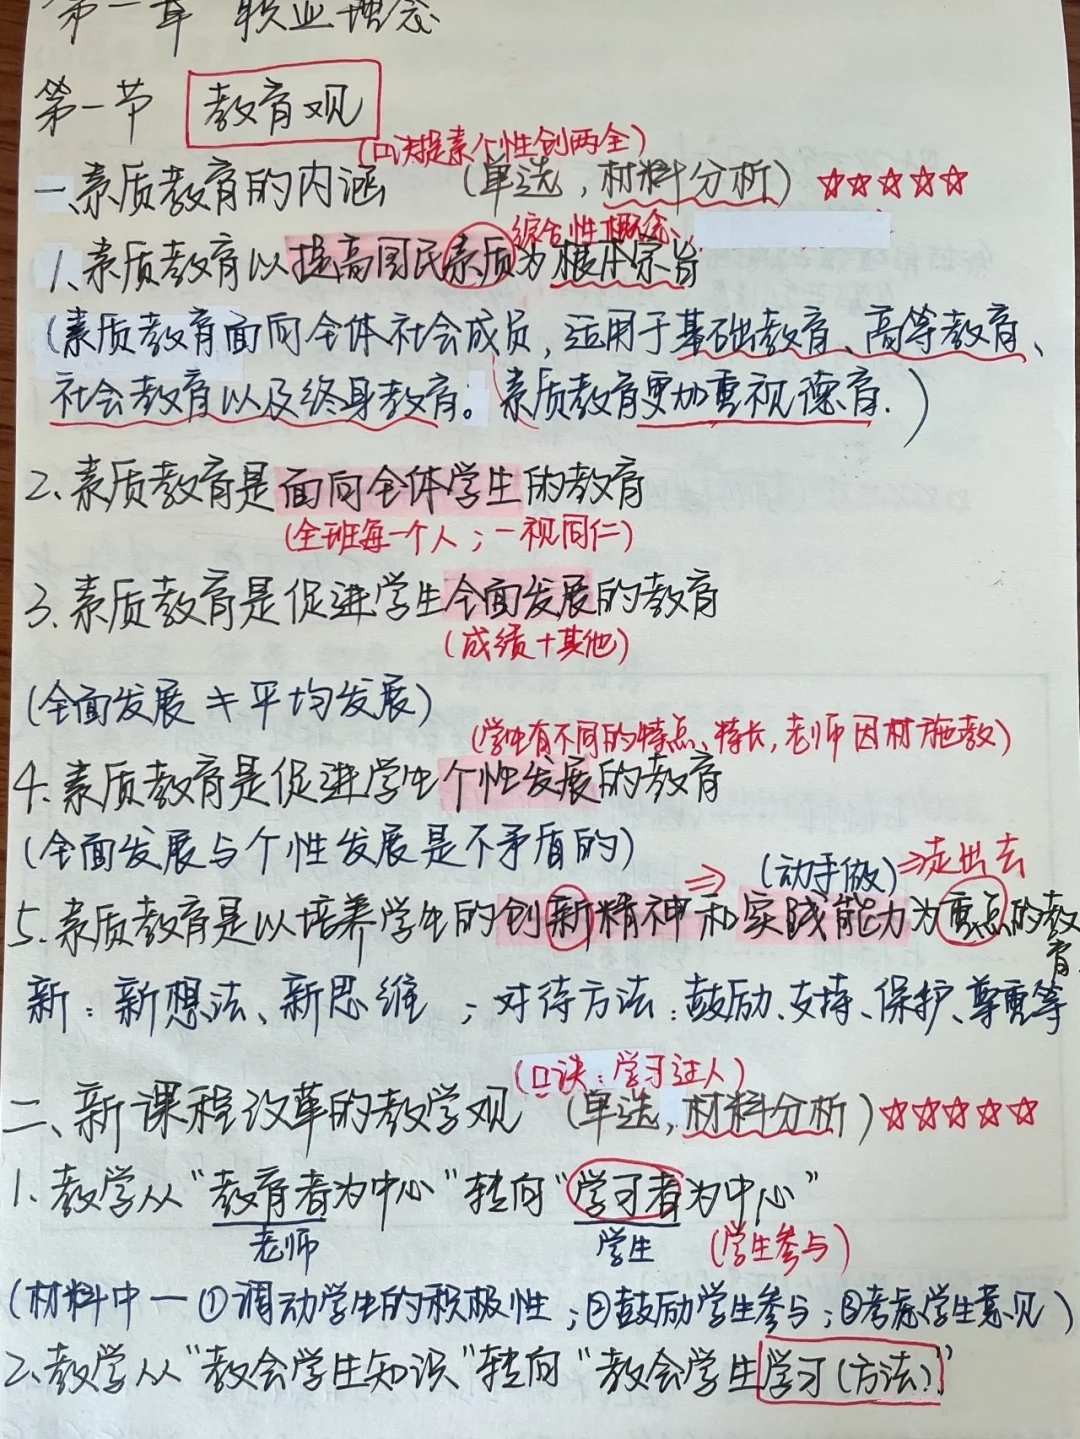 第一章 职业理念
第一节 教育观
(口诀提素个性创两全)
一、素质教育的内涵 (单选，材料分析) ☆☆☆☆☆
综合性概念、
1、素质教育以提高国民素质为根本宗旨
(素质教育面向全体社会成员，适用于基础教育、高等教育、
社会教育以及终身教育。素质教育更加重视德育.)
2、素质教育是面向全体学生的教育
(全班每一个人；一视同仁)
3.素质教育是促进学生全面发展的教育
(成绩+其他)
(全面发展≠平均发展)
(学生有不同的特点、特长,老师因材施教)
4.素质教育是促进学生个性发展的教育
(全面发展与个性发展是不矛盾的)
⇒ (动手做)⇒走出去
5.素质教育是以培养学生的创新精神和实践能力为重点的教育
新：新想法、新思维；对待方法：鼓励、支持、保护、尊重等
(口诀：学习过人)
二、新课程改革的教学观 (单选，材料分析)☆☆☆☆☆
1.教学从“教育者为中心”转向“学习者为中心”
老师 学生 (学生参与)
(材料中一①调动学生的积极性；②鼓励学生参与；③考虑学生意见)
2.教学从“教会学生知识”转向“教会学生学习(方法)”